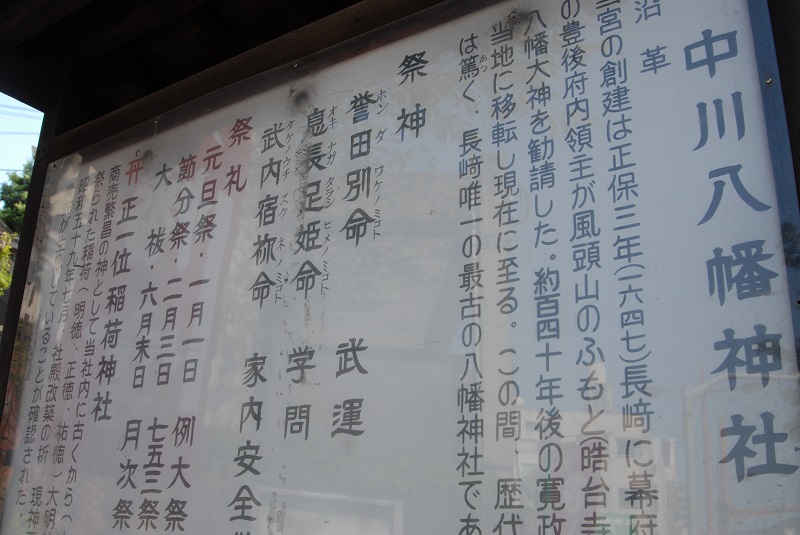 中川八幡神社
沿革
宮の創建は正保三年(六四七)長崎に幕府
の豊後府内領主が風頭山のふもと(晧台寺
八幡大神を勧請した。約百四十年後の寛政
当地に移転し現在に至る。この間、歴代
は篤く、長崎唯一の最古の八幡神社であ
あつ
祭神
誉田別命 武運
ホンダワケノミコト
息長足姫命 学問
オキナガタラシヒメノミコト
武内宿祢命 家内安全
タケウチスクネノミコト
祭礼
元旦祭・一月一日 例大祭
節分祭・二月三日 七五三祭
大祓・六月末日 月次祭
正一位 稲荷神社
商売繁昌の神として当社内に古くから(
祭られた稲荷(明徳・正徳・祐徳)大明
昭和五十九年七月、社殿改築の折、現神
ていることが確認された。